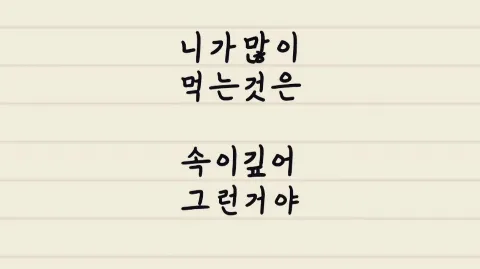 니가많이
먹는것은
속이깊어
그런거야